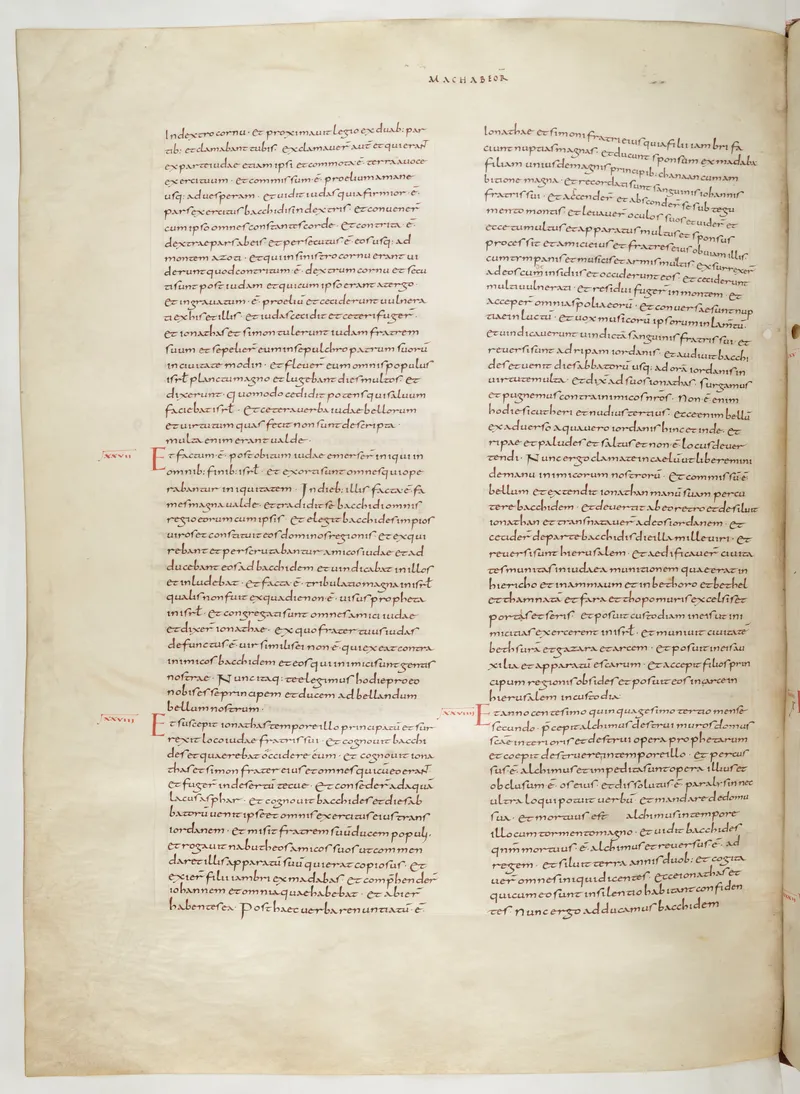 MACHABEOR
In dextro cornu · et proximauit legio ex duab: par
tib: et clamabant tubis · exclamauer aut et qui erant
ex parte iudae etiam ipsi et commota ē terra a uoce
exercituum · et commissum ē proelium a mane
usq; ad uesperam · et uidit iudas quia firmior ē
pars exercitus bacchidis in dextris et conuener
cum ipso omnes constantes corde · et contrita ē
dextrae pars ab eis et persecutus ē eos usq; ad
montem azoti · et qui in sinistro cornu erant ui
derunt quod contritum ē dextrum cornu et secu
ti sunt post iudam et qui cum ipso erant a tergo
et ingrauatum ē proeliū et ceciderunt uulnera
ti ex his et illis · et iudas cecidit et ceteri fuger̄ ·
et ionathas et simon tulerunt iudam fratrem
suum et sepelier̄ eum in sepulchro patrum suorū
in ciuitate modin · et fleuer̄ eum omnis populus
isrł planctu magno et lugebant dies multos et
dixerunt · quomodo cecidit potens qui saluum
faciebat isrł · et cetera uerba iudae bellorum
et uirtutum quas fecit non sunt descripta ·
multa enim erant ualde ·
xxvii Et factum ē post obitum iudae emerser̄ iniqui in
omnib: finib: isrł · et exorti sunt omnes qui ope
rabantur iniquitatem · In dieb: illis facta ē fa
mes magna ualde et tradidit se bacchidi omnis
regio eorum cum ipsis · et elegit bacchides impios
uiros et constituit eos dominos regionis et exqui
rebant et perscrutabantur amicos iudae et ad
ducebant eos ad bacchidem et uindicabat in illos
et inludebat · et facta ē tribulatio magna in isrł
qualis non fuit ex qua die non ē uisus propheta
in isrł · et congregati sunt omnes amici iudae
et dixer̄ ionathae · ex quo frater tuus iudas
defunctus ē uir similis ei non ē qui exeat contra
inimicos bacchidem et eos qui inimici sunt gentis
nostrae · Nunc itaq; te elegimus hodie pro eo
nobis esse principem et ducem ad bellandum
bellum nostrum ·
xxviii Et suscepit ionathas tempore illo principatū et sur
rexit loco iudae fratris sui · et cognouit bacchi
des et quaerebat occidere eum · et cognouit iona
thas et simon frater eius et omnes qui cū eo erant
et fuger̄ in desertū tecue · et consederā ad aquā
lacus asphar · et cognouit bacchides et die sab
batorū uenit ipse et omnis exercitus eius trans
iordanem · et misit fratrem suū ducem populi ·
et rogauit nabutheos amicos suos ut commen
daret illis apparatū suū qui erat copiosus · et
exier̄ filii iambri ex madaba et comp̄hender̄
iohannem et omnia quae habebat · et abier̄
habentes ea · Post haec uerba renuntiatū ē
Ionathae et simoni fratri eius quia filii iambri fa
ciunt nuptias magnas et ducunt sponsam ex madaba
filiam unius de magnis principib: chanaan cum am
bitione magna · et recordati sunt sanguinis iohannis
fratris sui · et ascender̄ et absconder̄ se sub tegu
mento montis et leuauer̄ oculos suos et uider̄ et
ecce tumultus et apparatus multus et sponsus
processit et amici eius et fratres eius obuiam illis
cum tympanis et musicis et armis multis et surrexer̄
ad eos cum insidiis et occiderunt eos et ceciderunt
multi uulnerati · et residui fuger̄ in montem et
acceper̄ omnia spolia eorū · et conuersae sunt nup
tiae in luctū · et uox musicorū ipsorum in lamtū
et uindicauerunt uindictā sanguinis fratris sui et
reuersi sunt ad ripam iordanis · et audiuit bacchi
des et uenit die sabbatorū usq; ad orā iordanis in
uirtute multa · et dixit ad suos ionathas · surgamus
et pugnemus contra inimicos nrōs · Non ē enim
hodie sicut heri et nudius tertius · ecce enim bellū
ex aduerso aqua uero iordanis hinc et inde · et
ripae et paludes et saltus et non ē locus deuer
tendi · Nunc ergo clamate in caelū ut liberemini
de manu inimicorum nostrorū · et commissū ē
bellum et extendit ionathan manū suam percu
tere bacchidem · et deuertit ab eo retro et desiluit
ionathan et transnatauer̄ ad eos iordanem · et
cecider̄ de parte bacchidis die illa mille uiri · et
reuersi sunt hierusalem · et aedificauer̄ ciuita
tes munitas in iudaea munitionem quae erat in
hiericho et in ammaum et in bethoro et bethel
et thamnata et fara et thopo muris excelsis et
portis et seris · et posuit custodiam in eis ut ini
micitias exercerent in isrł · et muniuit ciuitatē
bethsurā et gazara et arcem · et posuit in eis au
xilia et apparatū escarum · et accepit filios prin
cipum regionis obsides et posuit eos in arce in
hierusalem in custodia
xxviiii Et anno centesimo quinquagesimo tertio mense
secundo · p̄cepit alchimus destrui muros domus
scāe interioris et destrui opera prophetarum
et coepit destruere in tempore illo · et percus
sus ē alchimus et impedita sunt opera illius et
obclusum ē os eius et dissolutus ē paralysi nec
ultra loqui potuit uerbū et mandare de domu
sua · et mortuus est alchimus in tempore
illo cum tormento magno · et uidit bacchides
qnm mortuus ē alchimus et reuersus ē ad
regem · et siluit terra annis duob: et cogita
uer̄ omnes iniqui dicentes ecce ionathas et
qui cum eo sunt in silentio habitant confiden
tes Nunc ergo adducamus bacchidem